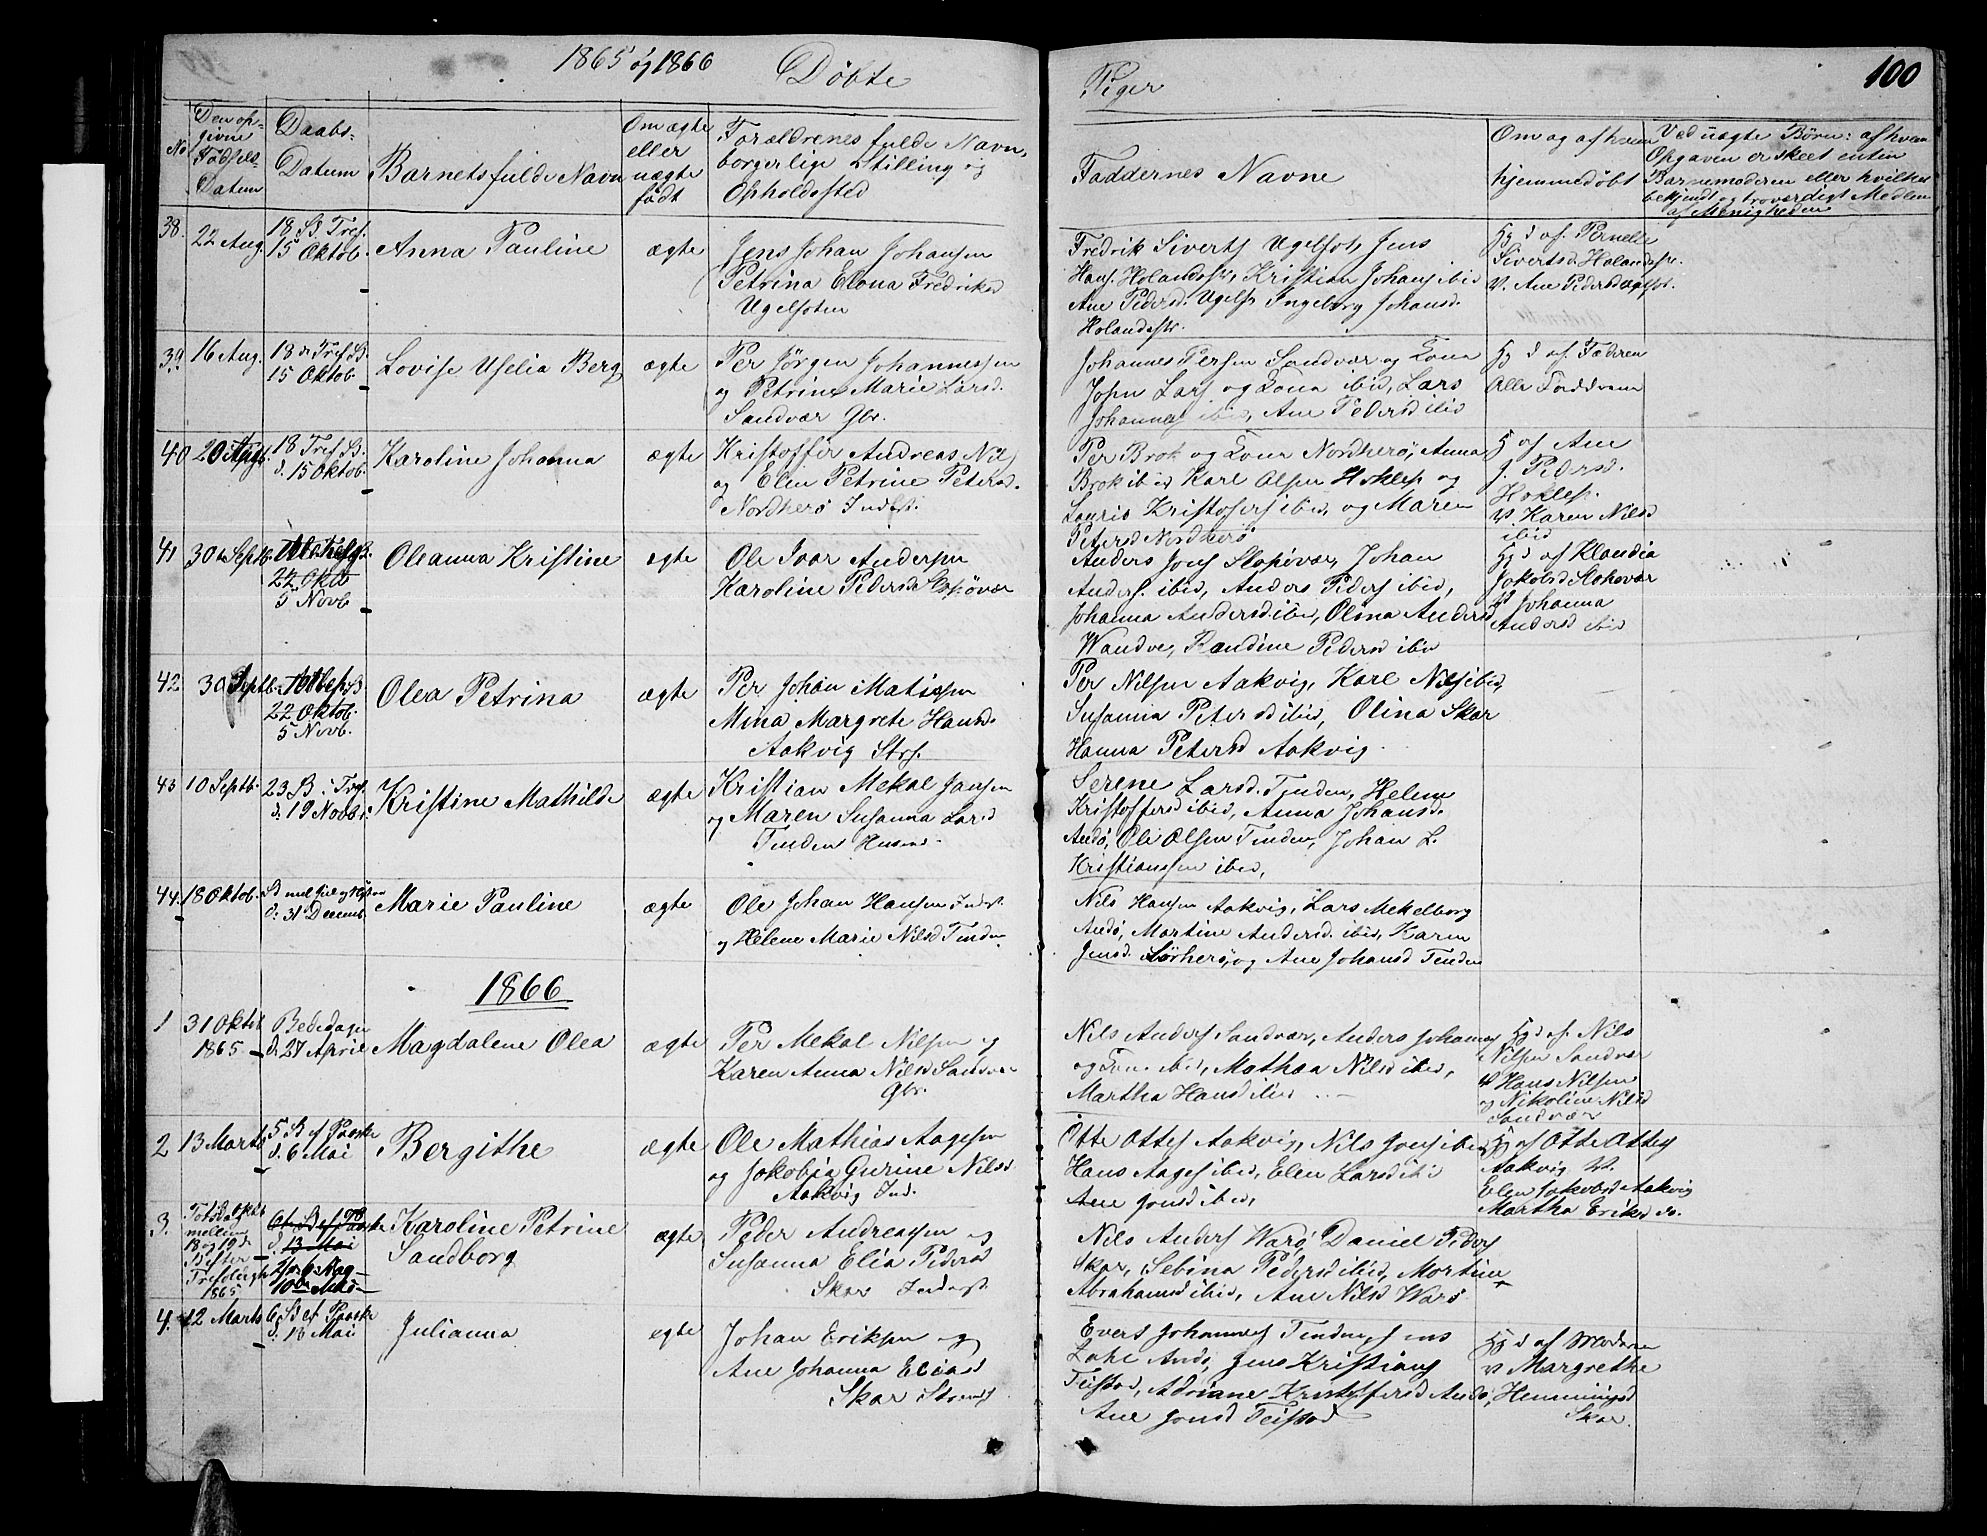 1865 og 1866 Döbte
Piger
100
No
Den op-
givne
Födsels-
Datum
Daabs-
Datum
Barnets fulde Navn
Om ægte
eller
uægte
födt
Forældrenes fulde Navn,
borgerlige Stilling og
Opholdssted
Faddernes Navne
Om og af hvem
hjemmedöbt
Ved uægte Börn: af hvem
Opgaven er skeet enten
Barnemoderen eller hvilket
bekjendt og troværdigt Medlem
af Menigheden
38.
22 Aug.
18 S. Tref.
15 Oktob.
Anna Pauline
ægte
Jens Johan Johansen
Petrina Elona Fredriksd
Ugelsoten
Fredrik Siverts Ugelsot, Jens
Hans. Holandsstr, Kristian Johans ibid
Ane Pedersd. Ugels Ingeborg Johansd.
Holandsstr.
Hj d af. Pernelle
Sivertsd. Holandsstr.
v. Ane Pedersd Ugelsot.
39.
16 Aug.
18 S. Tref
15 Oktob
Lovise Uselia Berg
ægte
Per Jörgen Johannessen
og Petrine Marie Larsd.
Sandvær Gbr.
Johannes Persen Sandvær og Kona
John Lars og Kona ibid, Lars
Johannes ibid, Ane Pedersd ibid
Hj d af. Faderen
Alle Faddrene
40
20 Aug.
18 Tref S.
d. 15 Oktob.
Karoline Johanna
ægte
Kristoffer Andreas Nils
og Elen Petrine Petersd.
Nordherö Inderst.
Per Brok og Kona Nordherö, Anna
Brok ibid Karl Olsen Hoklep og
Lauris Kristofers ibid, og Maren
Petersd Nordherö
H af Ane
J. Pedersd.
Hoklep.
v. Karen Nilsd
ibid
41
30te Septb.
22 Okto
5 Novb
Oleanna Kristine
egte
Ole Ivar Andersen
Karoline Pedersd Slapövær
Anders Jons Slapövær, Johan
Anders. ibid, Anders Peders ibid,
Johanna Andersd ibid, Olina Andersd
Wandve, Randine Pedersd ibid
Hj d af Klaudia
Jakobsd Slapövær
v Johanna
Andersd ibid
42
30 Septb.
22 Oktob.
5 Novb.
Olea Petrina
ægte
Per Johan Matissen
Mina Margrete Hansd.
Aakvig Strs.
Per Nilsen Aakvig, Karl Nils ibid,
Susanna Petersd ibid, Olina Skar
Hanna Petersd Aakvig.
43
10 Septb.
23 S. i Tref
d. 19 Novb.
Kristine Mathilde
ægte
Kristian Mekal Jansen
og Maren Susanna Larsd
Tenden Husmd.
Serene Larsd. Tenden, Helene
Kristoffersd ibid, Anna Johansd.
Andö, Ole Olsen Tenden, Johan L.
Kristianssen ibid,
44.
18 Oktob.
S mel Jul og Nytaar
d. 31 Decemb
Marie Pauline
ægte
Ole Johan Hansen Inderst.
og Helene Marie Nilsd Tenden
Nils Hansen Aakvig, Lars Mekelborg
Andö, Martine Andersd. ibid, Karen
Jensd. Sörherö, og Ane Johansd Tenden
1866
1
31 Oktob
1865
Bededagen
d. 27 April
Magdalene Olea
ægte
Per Mekal Nilsen og
Karen Anna Nilsd Sandvær
Gbr.
Nils Anders Sandvær, Anders Johannes
og Kone ibid, Mathea Nilsd ibid,
Martha Hansd ibid
Hj d af. Nils
Nilsen Sandvær
v Hans Nilsen
og Nikoline Nilsd
Sandvær
2
13 Marts
5 S. ef Paaske
d. 6 Mai
Bergithe
ægte
Ole Mathias Aagesen
og Jakobia Gurine Nilsd
Aakvig Ind.
Otte Ottes Aakvig, Nils Jons ibid
Hans Aages ibid, Elen Larsd ibid
Ane Jonsd ibid,
Hj af Otte Ottes
Aakvig v.
Elen Jakobsd Aakvig
Martha Eriksd do.
3.
mellem
18 og 19 d.
1865
6te S ef Paaske
d. 13 Mai
Karoline Petrine
Sandborg
ægte
Peder Andreassen og
Susanna Elia Pedersd
Skar Inderst
Nils Anders Warö, Daniel Peders
Skar, Sebina Pedersd ibid, Mortine
Abrahamsd ibid, Ane Nilsd Warö
4.
12 Marts
6 S ef Paaske
d. 13 Mai
Julianna
egte
Johan Eriksen og
Ane Johanna Eliasd
Skar Strands
Evert Johannes Tenden, Jens
Zahl Andö, Jens Kristians
Teistad, Adriane Kristoffersd Andö,
Ane Jonsd Teistad
Hj d af Moderen
v Margrethe
Hemmingsd
Skar.